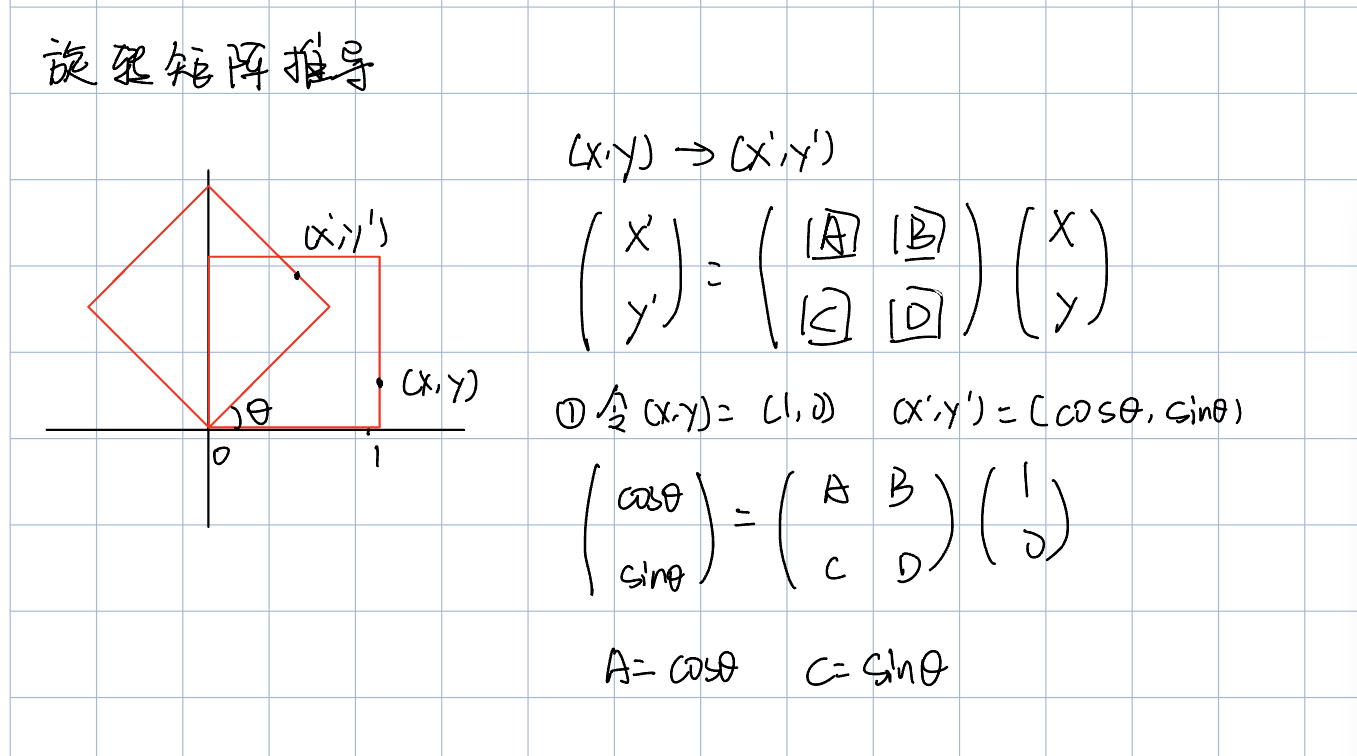 旋转矩阵推导
(x,y) → (x',y')
(x' y') = (A B C D) (x y)
(x',y')
(x,y)
θ
0 1
① 令(x,y)= (1,0) (x',y')=(cosθ, sinθ)
(cosθ sinθ) = (A B C D) (1 0)
A= cosθ C= sinθ